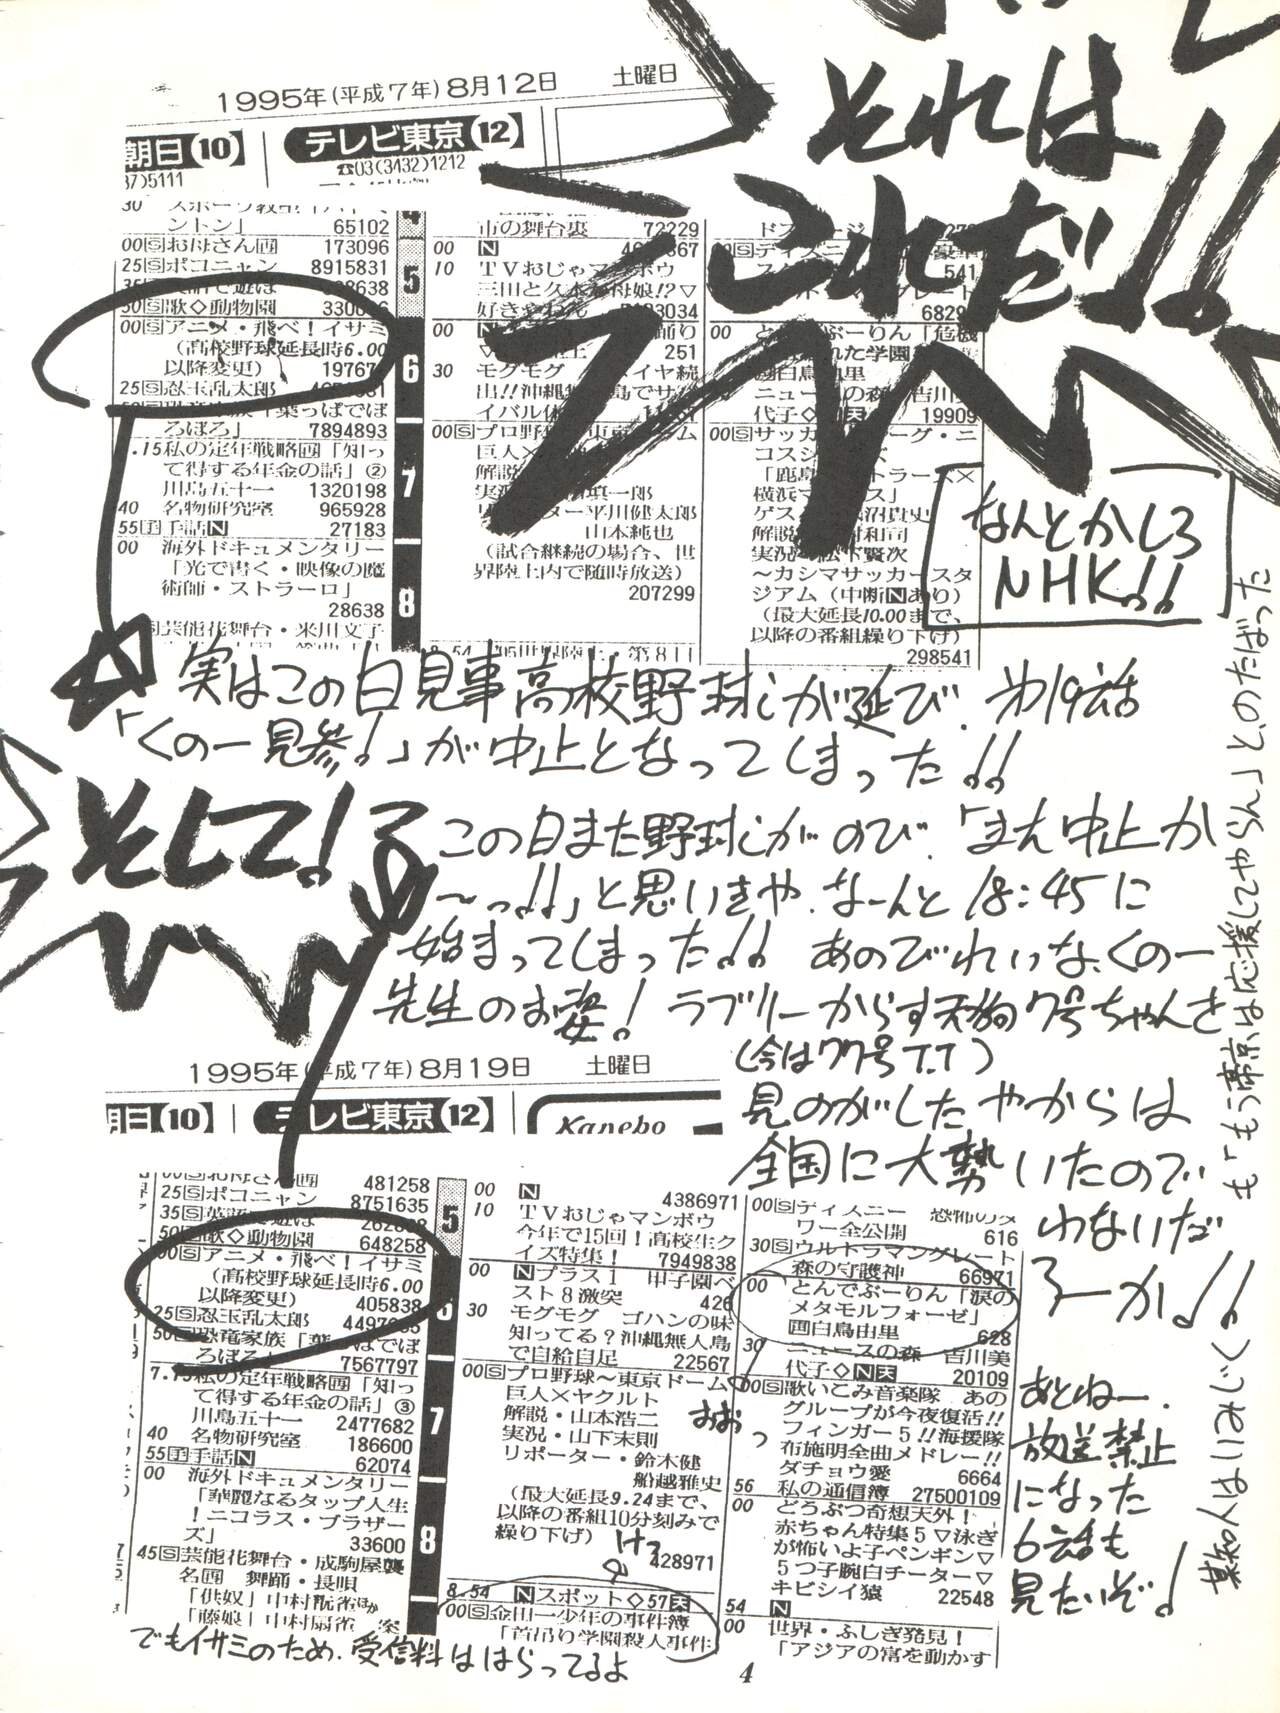 それは
これだ!!
1995年(平成7年)8月12日 土曜日
朝日(10)
テレビ東京(12)
☎03(3432)1212
37)5111
ントン」 65102
00Ⓢお母さん 173096
25Ⓢポコニャン 8915831
50Ⓢ歌◇動物園
00Ⓢアニメ・飛べ!イサミ
(高校野球延長時6.00
以降変更)
25Ⓢ忍玉乱太郎
ろぼろ」 7894893
.15私の定年戦略 「知っ
て得する年金の話」②
川島五十一 1320198
40 名物研究室 965928
55手手話N 27183
00 海外ドキュメンタリー
「光で書く・映像の魔
術師・ストラーロ」
28638
芸能花舞台・米川文子
4
5
6
7
8
市の舞台裏 72229
00 N
10 TVおじゃマンボウ
三田と久本が母娘!?▽
00
251
30 モグモグ
出!!沖縄無人島でサバ
イバル
00Ⓢプロ野球~東京ドーム
巨人×
解説
実況
リポーター・平川健太郎
山本純也
(試合継続の場合、世
界陸上内で随時放送)
207299
541
00 とんでぶーりん「危機
画白鳥由里
ニュースの森 吉川美
代子◇N天 19909
00ⓈサッカーJリーグ・ニ
コスシリーズ
「鹿島アントラーズ×
横浜マリノス」
~カシマサッカースタ
ジアム(中断Nあり)
(最大延長10.00まで、
以降の番組繰り下げ)
298541
なんとかしろ
NHK!!
実はこの日見事高校野球が延び、第19話
「くの一見参!」が中止となってしまった!!
そして!
この日また野球がのび、「また中止か
~っ!!」と思いきや、なーんと18:45に
始まってしまった!! あのびれいな、くの一
先生のお姿! ラブリーからす天狗7号ちゃんを
(今は77号T.T)
見のがしたやからは
全国に大勢いたので
わないだ
ろーか!!
あとねー、
放送禁止
になった
6話も
見たいぞ!
某知人はいみじくも「もう帝京は応援してやらん」と、のたばった
1995年(平成7年)8月19日 土曜日
朝日(10)
テレビ東京(12)
Kanebo
481258
25Ⓢポコニャン 8751635
35Ⓢ英語で遊ぼ
50Ⓢ歌◇動物園 648258
00Ⓢアニメ・飛べ!イサミ
(高校野球延長時6.00
以降変更) 405838
25Ⓢ忍玉乱太郎
50Ⓢ恐竜家族「葉っぱでぼ
ろぼろ」 7567797
7.15私の定年戦略 「知っ
て得する年金の話」③
川島五十一 2477682
40 名物研究室 186600
55手手話N 62074
00 海外ドキュメンタリー
「華麗なるタップ人生
!ニコラス・ブラザー
ズ」 33600
45Ⓢ芸能花舞台・成駒屋襲
名 舞踊・長唄
「供奴」中村翫雀ほか
「藤娘」中村扇雀
5
6
7
8
00 N 4386971
10 TVおじゃマンボウ
今年で15回!高校生ク
イズ特集! 7949838
00 Nプラス1 甲子園ベ
スト8激突 426
30 モグモグ ゴハンの味
知ってる?沖縄無人島
で自給自足 22567
00Ⓢプロ野球~東京ドーム
巨人×ヤクルト
解説・山本浩二
実況・山下末則
リポーター・鈴木健
船越雅史
(最大延長9.24まで、
以降の番組10分刻みで
繰り下げ)
428971
8.54 Nスポット◇57天
00Ⓢ金田一少年の事件簿
「首吊り学園殺人事件
00Ⓢディズニー 恐怖のタ
ワー全公開 616
30Ⓢウルトラマングレート
森の守護神 66971
00 とんでぶーりん「涙の
メタモルフォーゼ」
画白鳥由里 628
30 ニュースの森 吉川美
代子◇N天 20109
00Ⓢ歌いこみ音楽隊 あの
グループが今夜復活!!
フィンガー5!!海援隊
布施明全曲メドレー!!
ダチョウ愛 6664
56 私の通信簿 27500109
00 どうぶつ奇想天外!
赤ちゃん特集5▽泳ぎ
が怖いよ子ペンギン▽
5つ子腕白チーター▽
キビシイ猿 22548
54 N
00 世界・ふしぎ発見!
「アジアの富を動かす
おおっ
けっ
でもイサミのため、受信料ははらってるよ
4